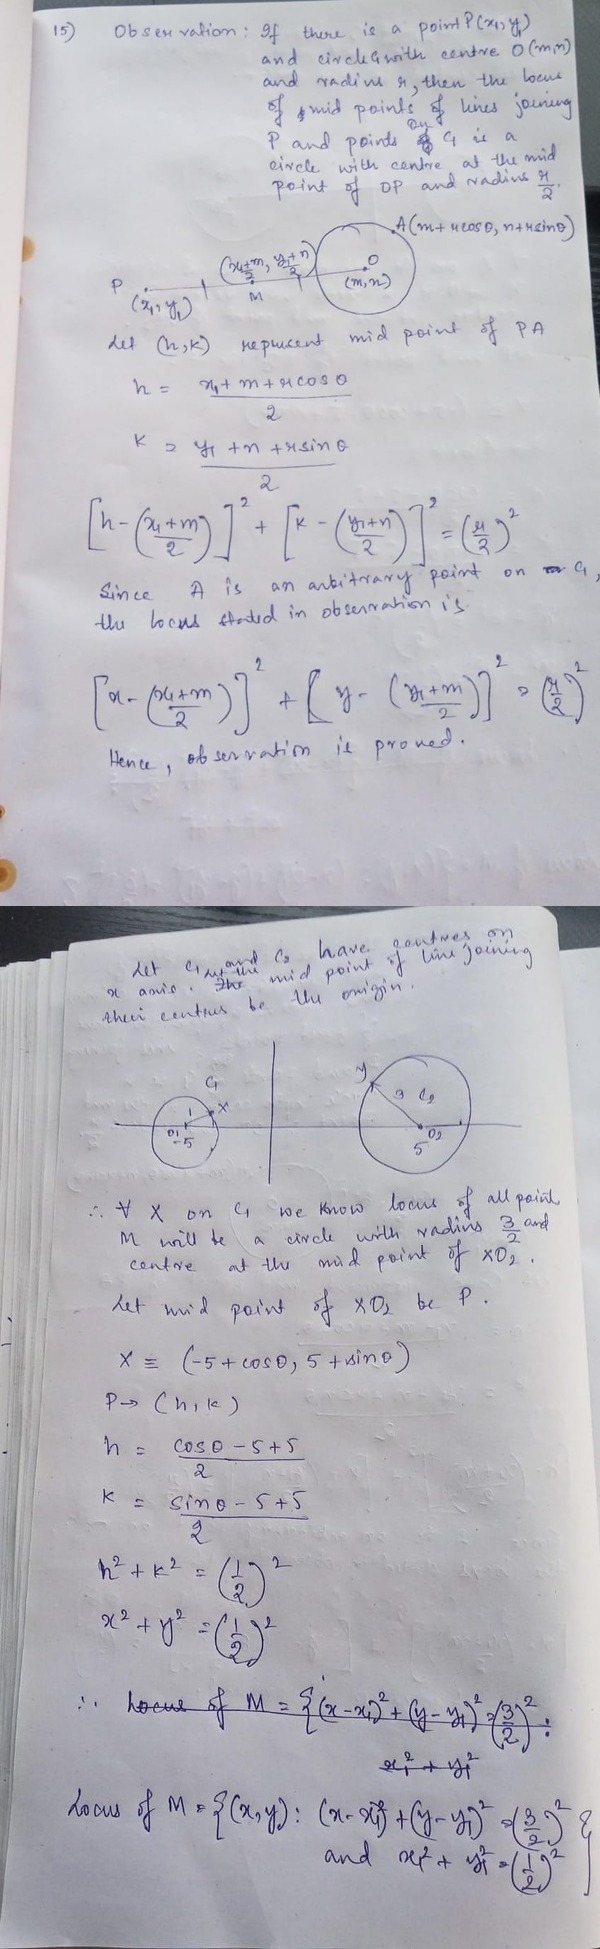 15) Observation: If there is a point P(x₁, y₁)
and circle C₁ with centre O(m,n)
and radius r, then the locus
of mid points of lines joining
P and points on C₁ is a
circle with centre at the mid
point of OP and radius r/2.
A(m+rcosθ, n+rsinθ)
((x₁+m)/2, (y₁+n)/2)
P M O
(x₁, y₁) (m,n)
Let (h,k) represent mid point of PA
h = (x₁+m+rcosθ)/2
k = (y₁+n+rsinθ)/2
[h-((x₁+m)/2)]² + [k-((y₁+n)/2)]² = (r/2)²
Since A is an arbitrary point on C₁,
the locus stated in observation is
[x-((x₁+m)/2)]² + [y-((y₁+m)/2)]² = (r/2)²
Hence, observation is proved.
Let C₁ and C₂ have centres on
x axis. Let the mid point of line joining
their centres be the origin.
C₁ y 3 C₂
1 x
O₁ -5 O₂ 5
∴ ∀ X on C₁ we know locus of all point
M will be a circle with radius 3/2 and
centre at the mid point of XO₂.
Let mid point of XO₂ be P.
X ≡ (-5+cosθ, 5+sinθ)
P → (h,k)
h = (cosθ-5+5)/2
k = (sinθ-5+5)/2
h²+k² = (1/2)²
x²+y² = (1/2)²
∴ Locus of M = {(x-x₁)²+(y-y₁)²=(3/2)² :
x₁²+y₁²
Locus of M = {(x,y): (x-x₁)²+(y-y₁)²=(3/2)²
and x₁²+y₁²=(1/2)²}